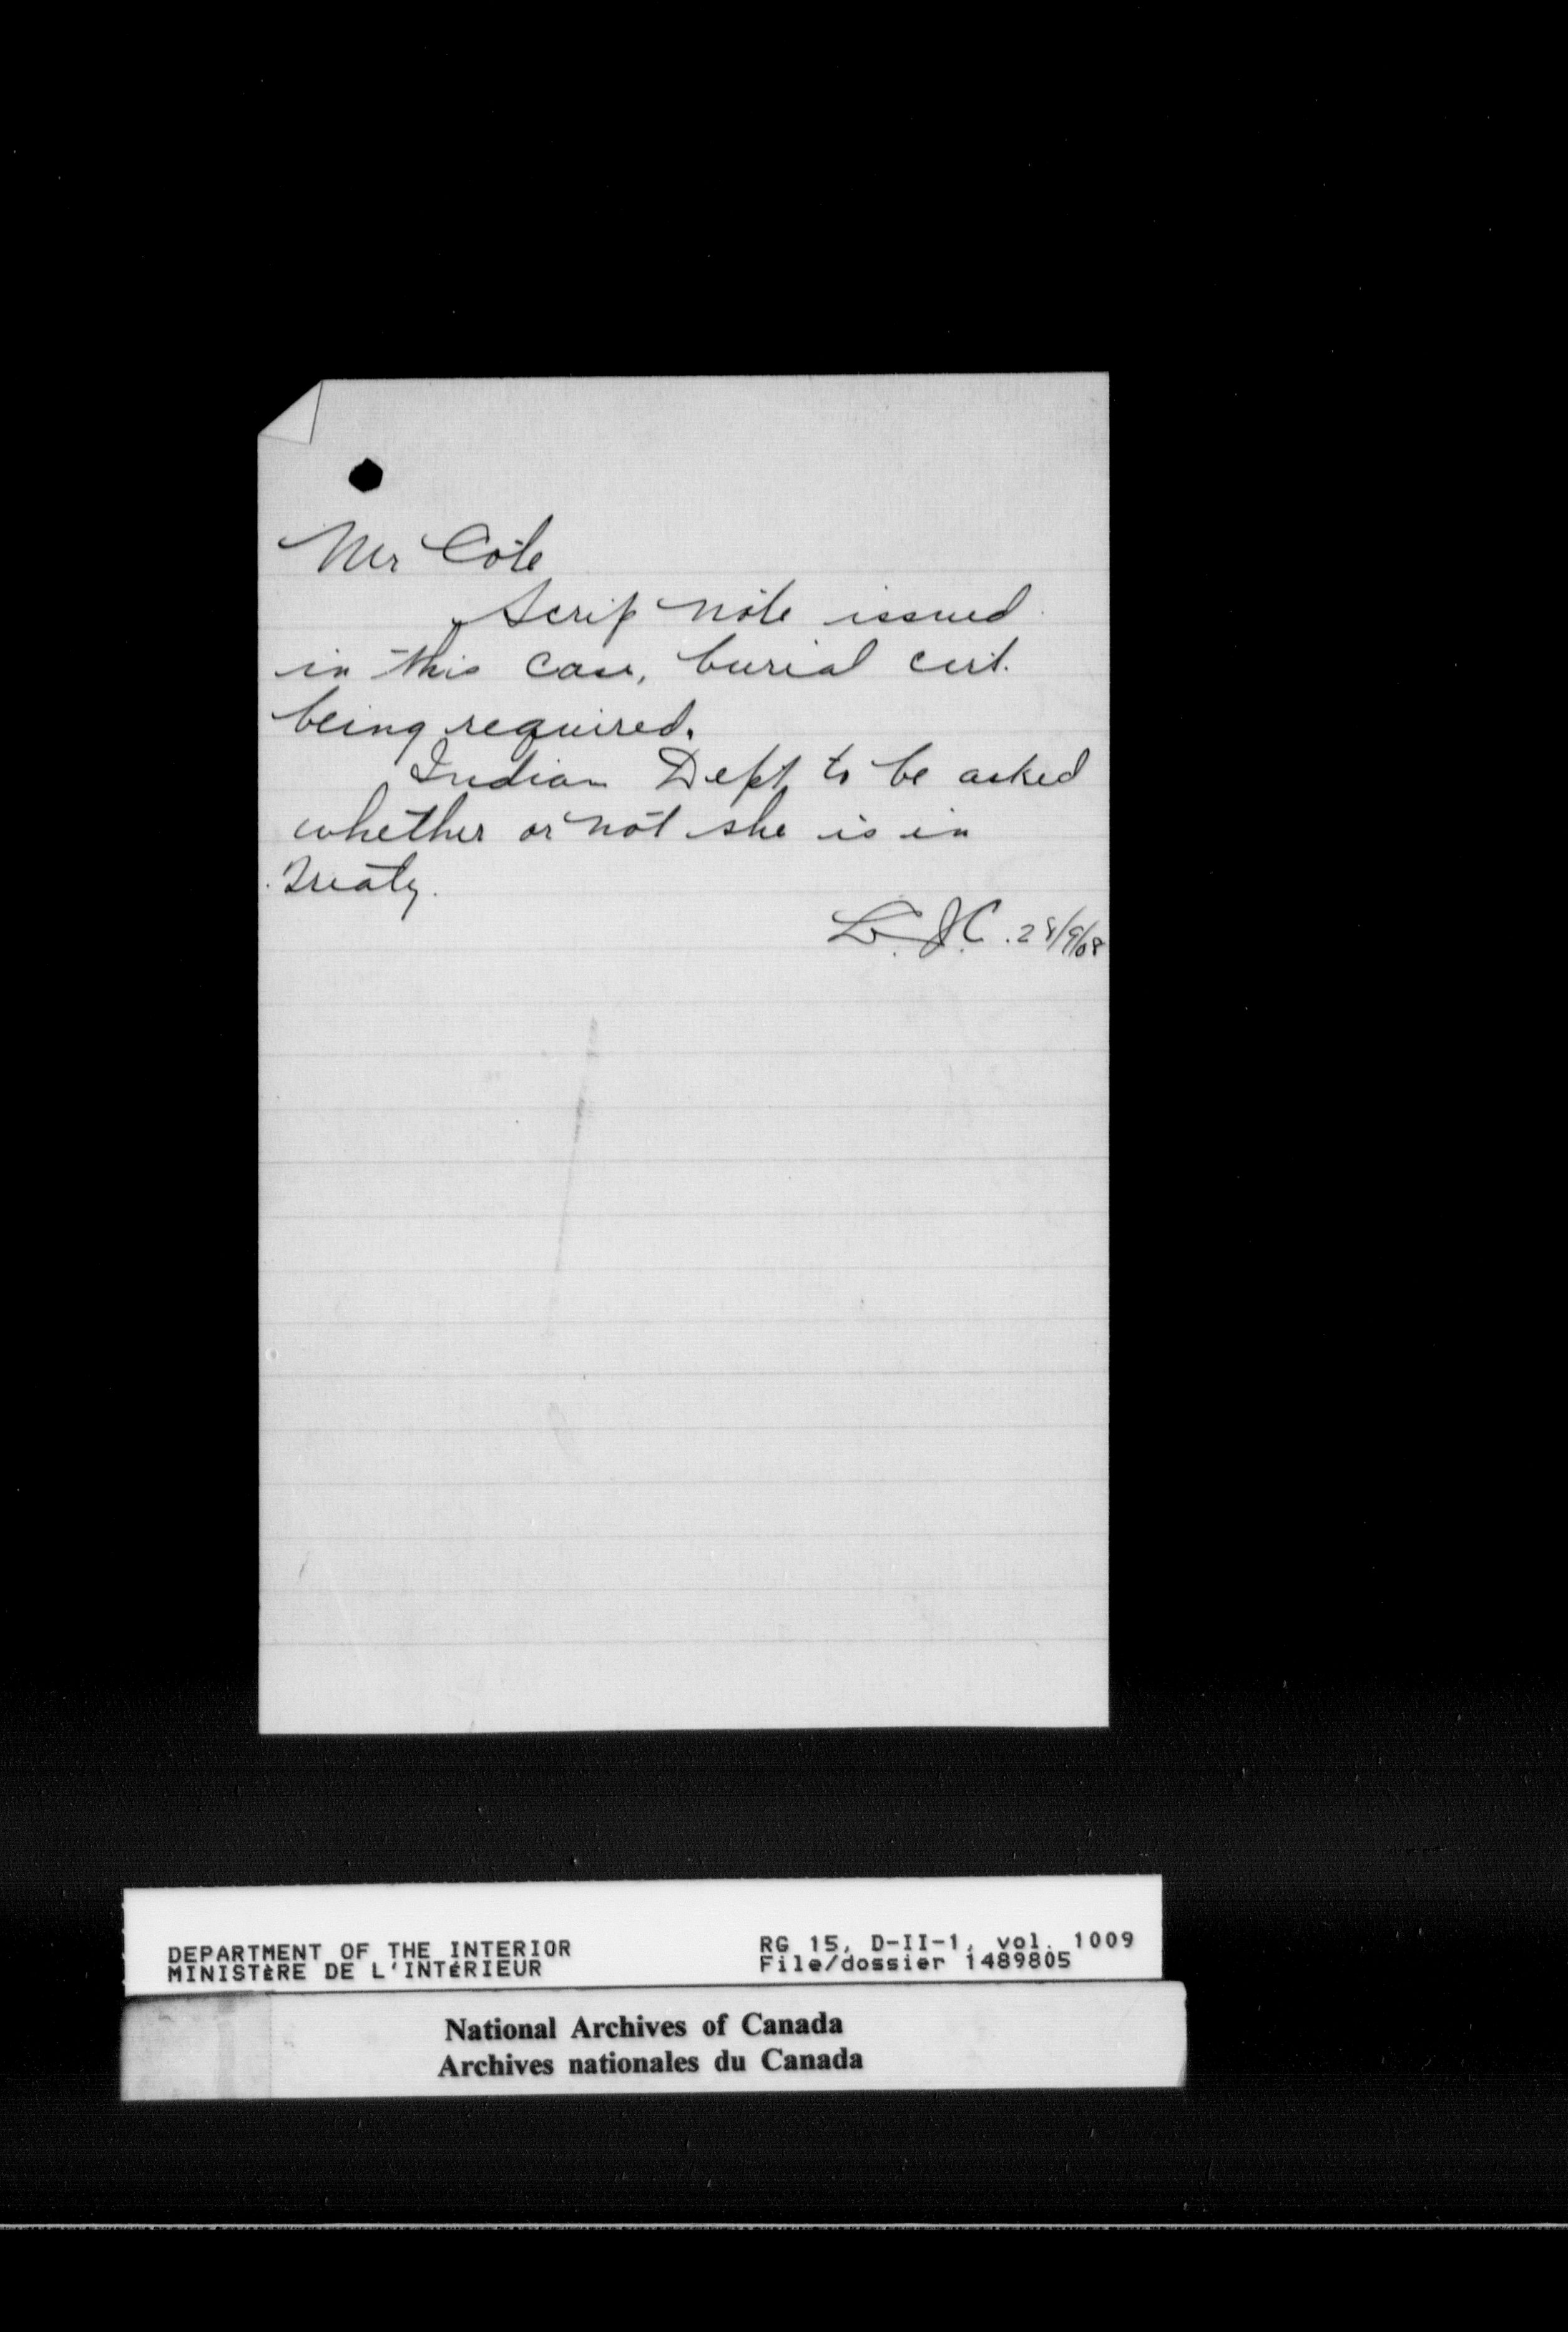 Mr Côté
Scrip note issued
in this case, burial cert.
being required.
Indian Dept. to be asked
whether or not she is in
Treaty.
L. J. C. 28/9/08
DEPARTMENT OF THE INTERIOR
MINISTÈRE DE L'INTÉRIEUR
RG 15, D-II-1, vol. 1009
File/dossier 1489805
National Archives of Canada
Archives nationales du Canada